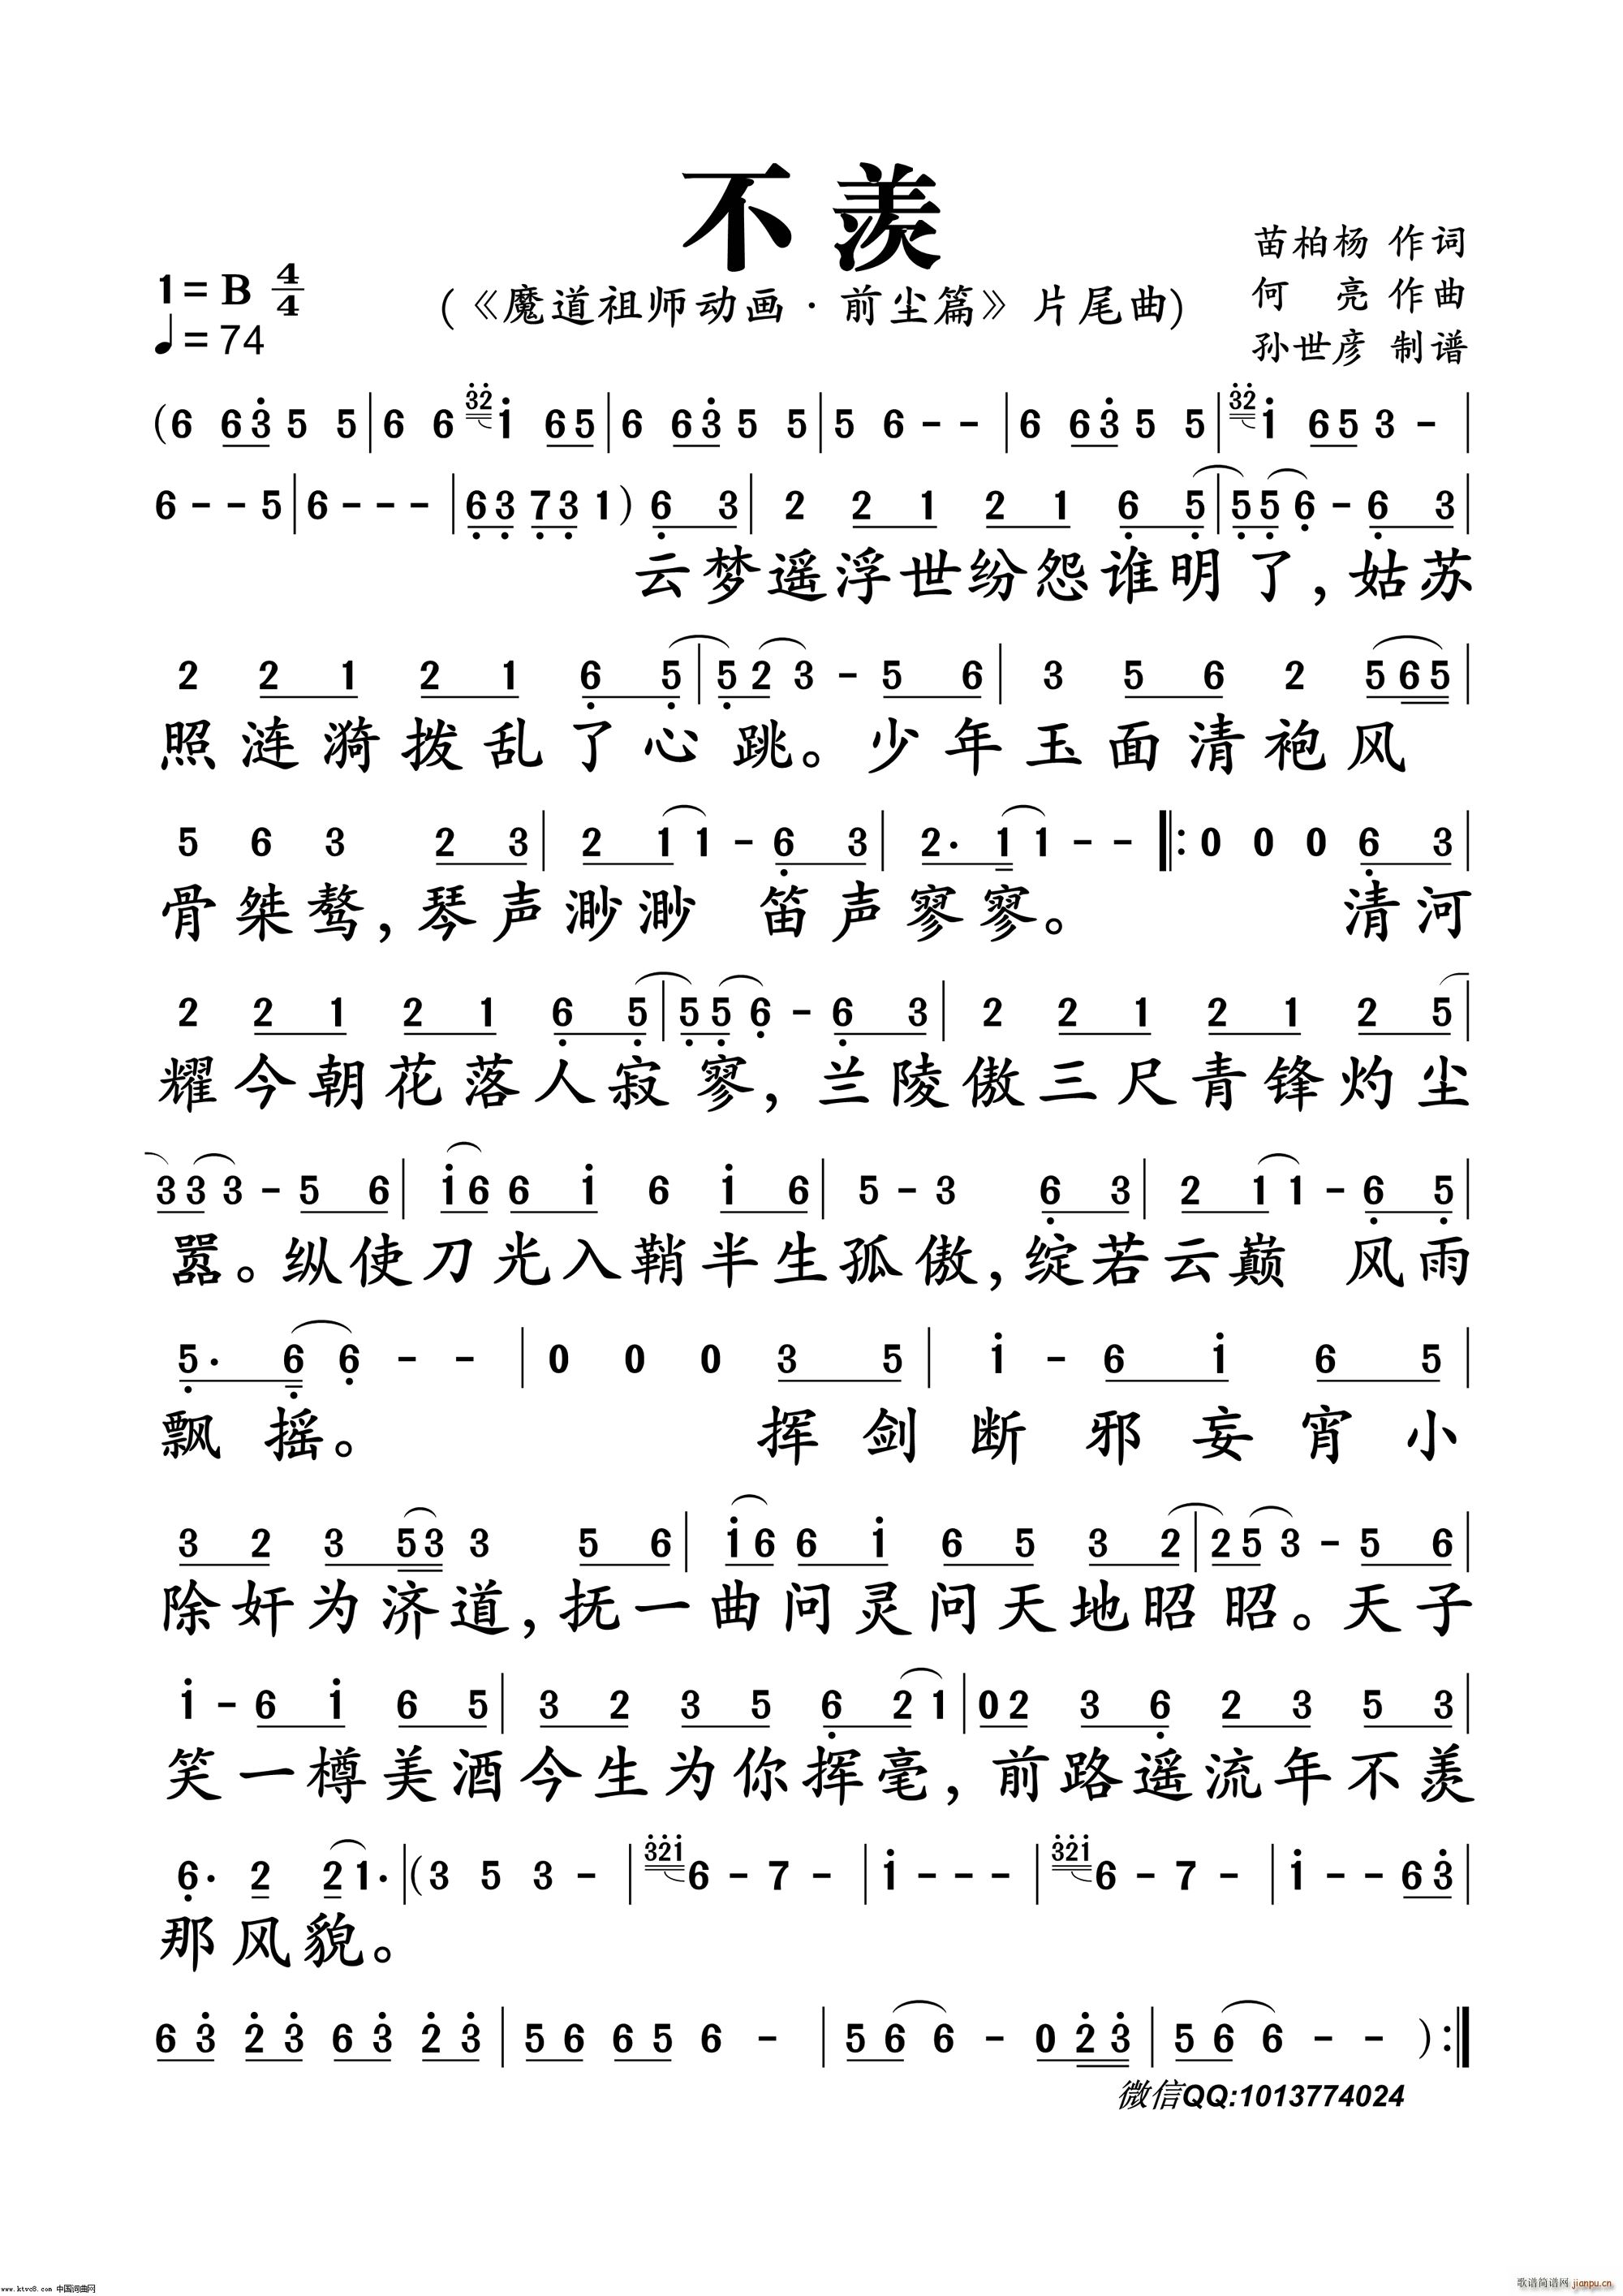 不羡
苗柏杨 作词
1=B 4/4
(《魔道祖师动画·前尘篇》片尾曲)
何 亮 作曲
♩=74
孙世彦 制谱
(6 6 3̇ 5 5 | 6 6 3̇2̇ 1̇ 6 5 | 6 6 3̇ 5 5 | 5 6 - - | 6 6 3̇ 5 5 | 3̇2̇ 1̇ 6 5 3 - |
6 - - 5 | 6 - - - | 6̣ 3̣ 7̣ 3̣ 1) 6̣ 3 | 2 2 1 2 1 6̣ 5̣ | 5̣ 5̣ 6̣ - 6̣ 3 |
云梦遥浮世纷怨谁明了,姑苏
2 2 1 2 1 6̣ 5̣ | 5̣ 2 3 - 5 6 | 3 5 6 2 5 6 5 |
照涟漪拨乱了心跳。少年玉面清袍风
5 6 3 2 3 | 2 1 1 - 6̣ 3 | 2· 1 1 - - ‖: 0 0 0 6̣ 3 |
骨桀骜,琴声渺渺 笛声寥寥。 清河
2 2 1 2 1 6̣ 5̣ | 5̣ 5̣ 6̣ - 6̣ 3 | 2 2 1 2 1 2 5 |
耀今朝花落人寂寥,兰陵傲三尺青锋灼尘
3 3 3 - 5 6 | 1̇ 6 6 1̇ 6 1̇ 6 | 5 - 3 6̣ 3 | 2 1 1 - 6̣ 5̣ |
嚣。纵使刀光入鞘半生孤傲,绽若云巅 风雨
5̣· 6̣ 6̣ - - | 0 0 0 3 5 | 1̇ - 6 1̇ 6 5 |
飘摇。 挥剑断邪妄宵小
3 2 3 5 3 3 5 6 | 1̇ 6 6 1̇ 6 5 3 2 | 2 5 3 - 5 6 |
除奸为济道,抚一曲问灵问天地昭昭。天子
1̇ - 6 1̇ 6 5 | 3 2 3 5 6̣ 2 1 | 0 2 3 6̣ 2 3 5 3 |
笑一樽美酒今生为你挥毫,前路遥流年不羡
6̣· 2 2 1· | (3 5 3 - | 3̇2̇1̇ 6 - 7 - | 1̇ - - - | 3̇2̇1̇ 6 - 7 - | 1̇ - - 6 3̇ |
那风貌。
6 3̇ 2̇ 3̇ 6 3̇ 2̇ 3̇ | 5 6 6 5 6 - | 5 6 6 - 0 2̇ 3̇ | 5 6 6 - - ) :‖
微信QQ:1013774024
www.ktvc8.com 中国词曲网
歌谱简谱网 jianpu.cn